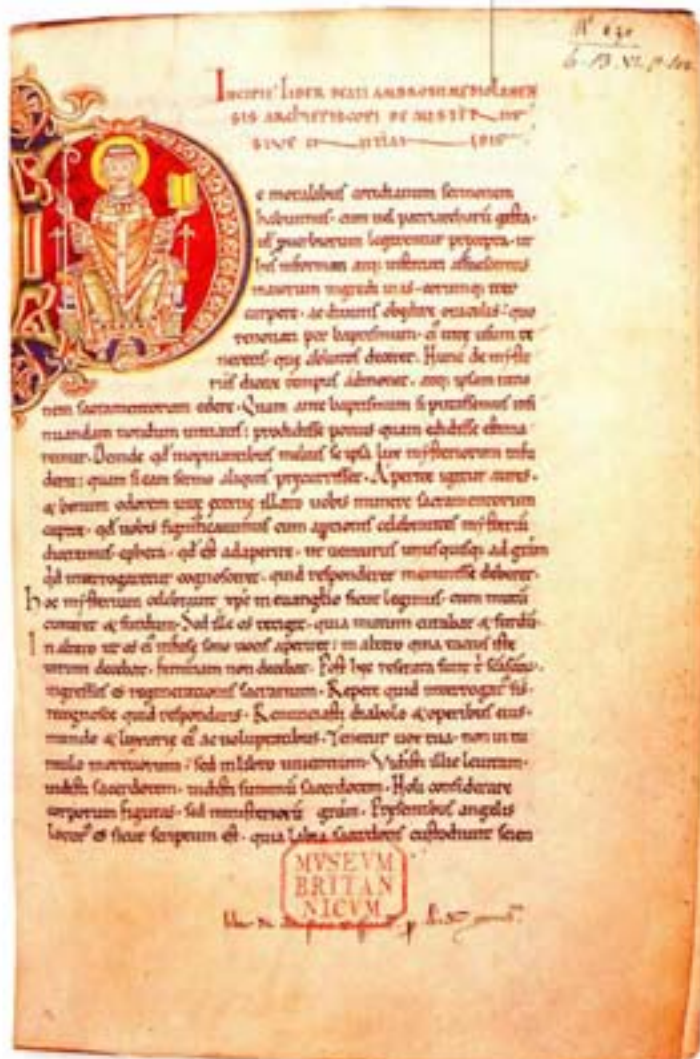 Nº 630
6. 13. XI. p. 
Incipit Liber beati ambrosii mediolanen
sis archiepiscopi de misteriis
sive initiandis
e moralibus cottidianum sermonem
habuimus. cum uel patriarcharū gesta.
uel prouerbiorum legerentur precepta. ut
his informati atq; instituti assuesceremus
maiorum ingredi uias. eorumq; iter
carpere. ac diuinis obedire oraculis: quo
renouati per baptismum. ei uite usum te
neretis. que ablutos deceret. Nunc de miste
riis dicere tempus admonet. atq; ipsam ratio
nem sacramentorum edere. Quam ante baptismum si putassemus insi
nuandam nondum initiatis: prodidisse potius quam edidisse estima
remur. Deinde qd inopinantibus melius se ipsa lux mysteriorum infu
derit: quam si eam sermo aliquis precurrisset. Aperite igitur aures.
& bonum odorem uite eterne illato uobis munere sacramentorum
capite. qd uobis significauimus cum aptionis celebrantes misterii
diceremus. epheta. qd est adaperire. ut uenturus unusquisq; ad grām
qd interrogaretur cognosceret. quid responderet meminisse deberet.
hoc misterium celebrauit xpc in euanglio sicut legimus. cum mutū
curaret & surdum. Sed ille os tetigit. quia mutum curabat & surdū.
In altero ut os ei infuse sono uocis aperiret: in altero quia tactus iste
uirum decebat. feminam non deceret. Post hec reserata sunt t scāscōrū.
ingressus es regenerationis sacrarium. Repete quid interrogatus sis.
recognosce quid responderis. Renunciasti diabolo & operibus eius.
mundo & luxurie ei ac uoluptatibus. Tenetur uox tua. non in tu
mulo mortuorum: sed in libro uiuentium. Vidisti illic leuitam.
uidisti sacerdotem. uidisti summū sacerdotem. Noli considerare
corporum figuras. sed ministeriorū grām. Presentibus angelis
locutus es sicut scriptum est. quia labia sacerdotis custodiunt scien
MVSEVM
BRITAN
NICVM